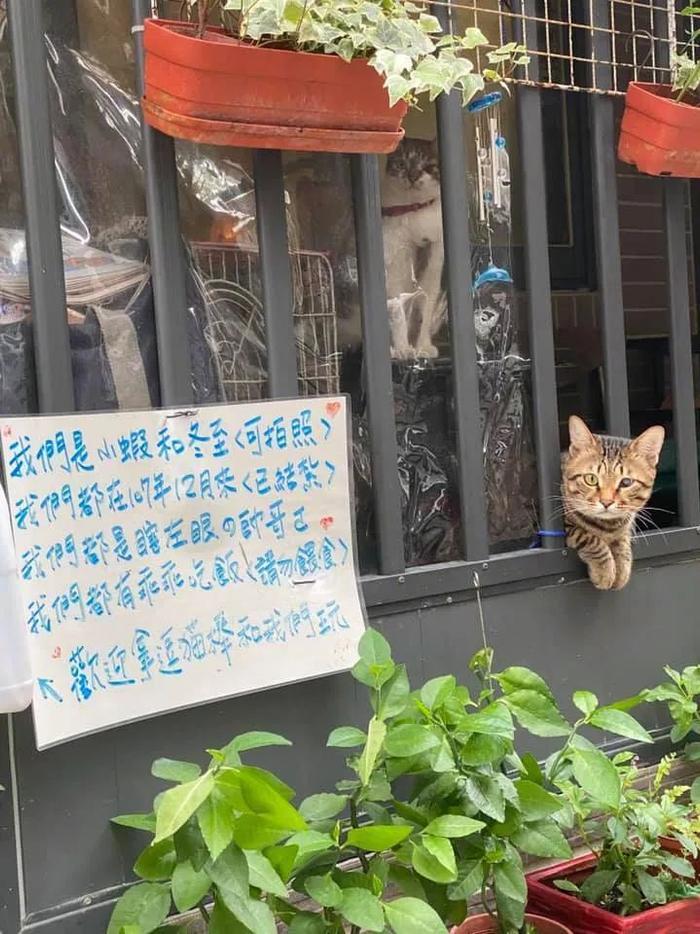 我們是小蝦和冬至<可拍照>
我們都在107年12月來<已結紮>
我們都是瞎左眼の帥哥ㄛ
我們都有乖乖吃飯<請勿餵食>
歡迎拿逗貓棒和我們玩